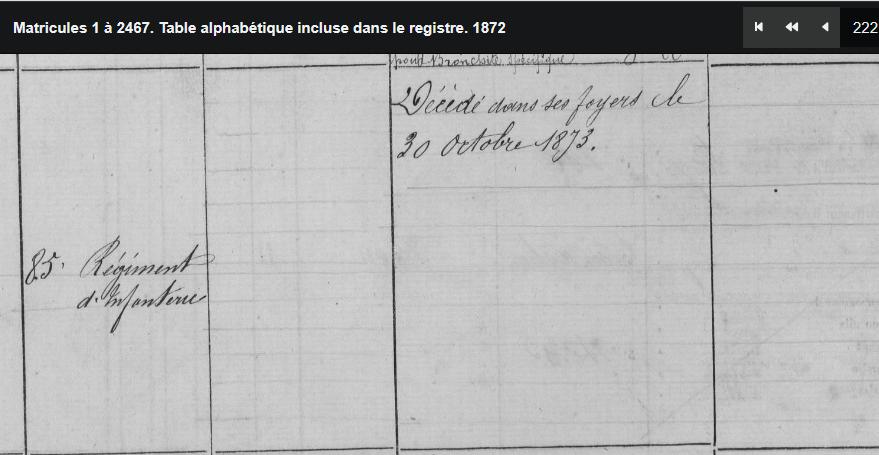 Matricules 1 à 2467. Table alphabétique incluse dans le registre. 1872
222
pour Bronchite spécifique
Décédé dans ses foyers le
30 octobre 1873.
85e Régiment
d'Infanterie